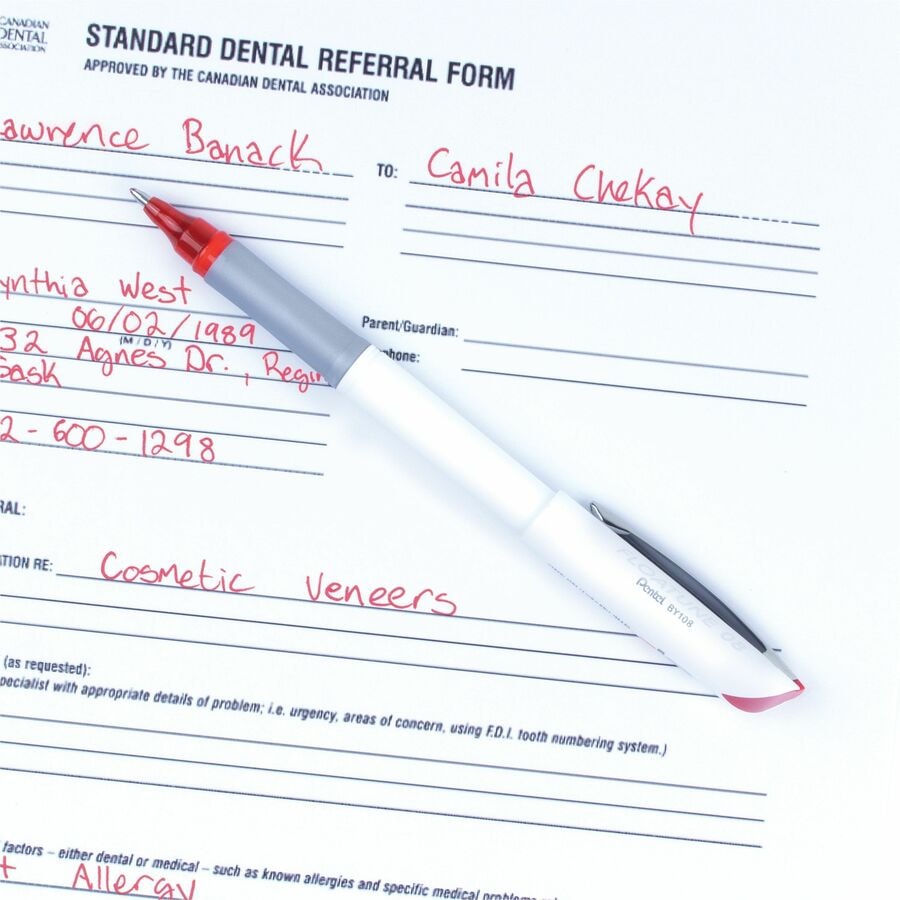 CANADIAN
DENTAL
ASSOCIATION
STANDARD DENTAL REFERRAL FORM
APPROVED BY THE CANADIAN DENTAL ASSOCIATION
awrence Banack
TO: Camila Chekay
ynthia West
06/02/1989
(M/D/Y)
32 Agnes Dr., Regin
Sask
2-600-1298
Parent/Guardian:
phone:
RAL:
ATION RE: Cosmetic Veneers
FLOATLINE 08
Pentel BY108
(as requested):
pecialist with appropriate details of problem; i.e. urgency, areas of concern, using F.D.I. tooth numbering system.)
factors – either dental or medical – such as known allergies and specific medical problems
t Allergy